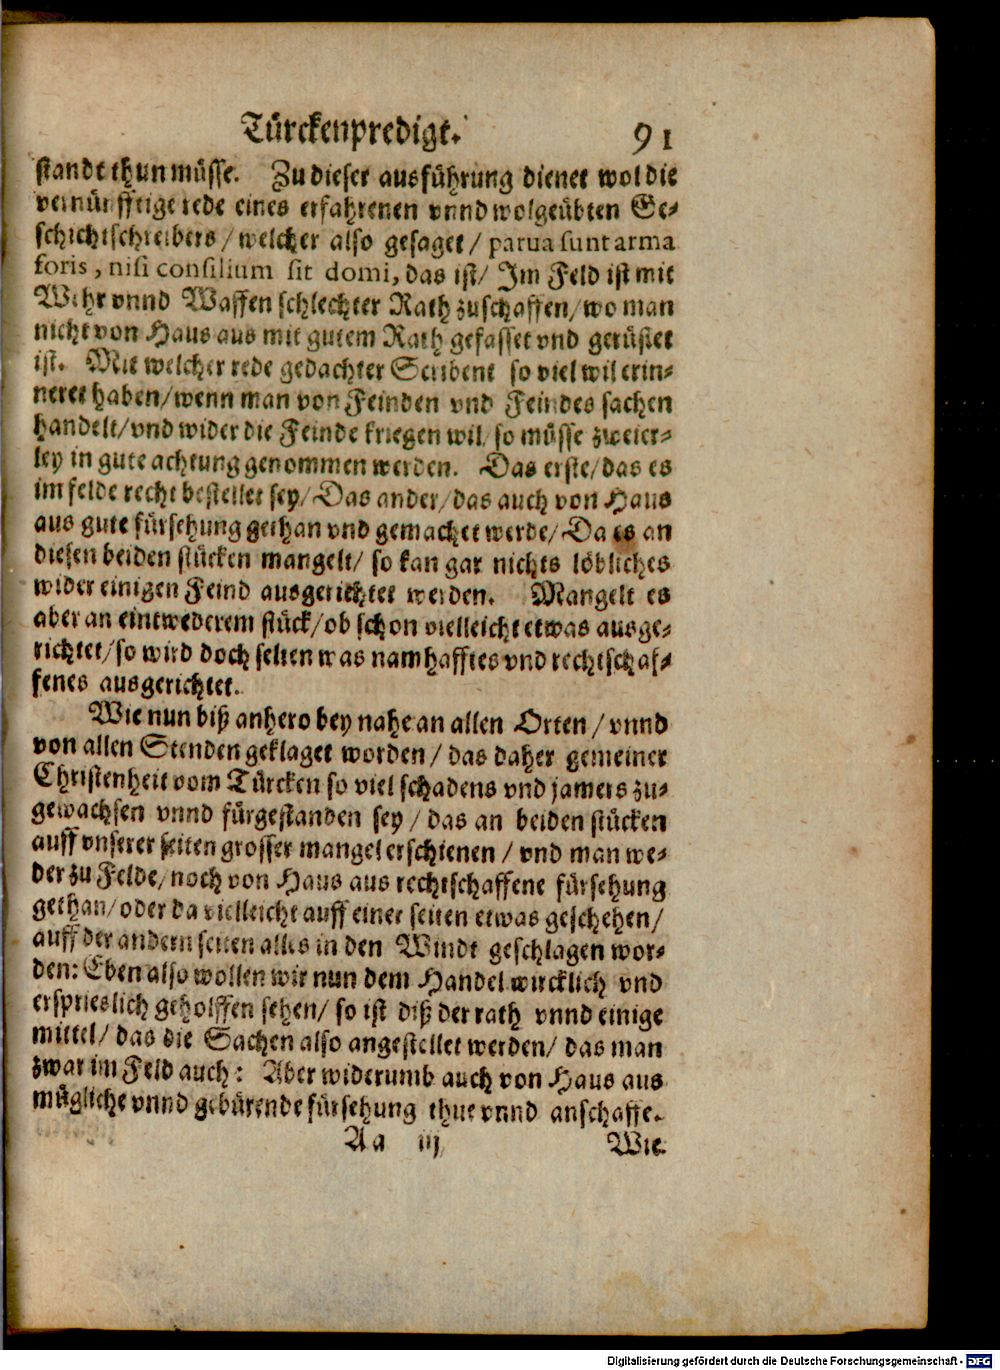 Türckenpredigt. 91
standt thun müsse. Zu dieser ausführung dienet wol die
vernünfftige rede eines erfahrenen vnnd wolgeübten Ge-
schichtschreibers / welcher also gesaget / parua sunt arma
foris, nisi consilium sit domi, das ist / Im Feld ist mit
Wehr vnnd Waffen schlechter Rath zuschaffen / wo man
nicht von Haus aus mit gutem Rath gefasset vnd gerüstet
ist. Mit welcher rede gedachter Scribent so viel wil erin-
neret haben / wenn man von Feinden vnd Feindes sachen
handelt / vnd wider die Feinde kriegen wil / so müsse zweier-
ley in gute achtung genommen werden. Das erste / das es
im felde recht bestellet sey / Das ander / das auch von Haus
aus gute fürsehung gethan vnd gemachet werde / Da es an
diesen beiden stücken mangelt / so kan gar nichts löbliches
wider einigen Feind ausgerichtet werden. Mangelt es
aber an eintwederem stück / ob schon vielleicht etwas ausge-
richtet / so wird doch selten was namhafftes vnd rechtschaf-
fenes ausgerichtet.
Wie nun biß anhero bey nahe an allen Orten / vnnd
von allen Stenden geklaget worden / das daher gemeiner
Christenheit vom Türcken so viel schadens vnd jamers zu-
gewachsen vnnd fürgestanden sey / das an beiden stücken
auff vnserer seiten grosser mangel erschienen / vnd man we-
der zu Felde / noch von Haus aus rechtschaffene fürsehung
gethan / oder da vielleicht auff einer seiten etwas geschehen /
auff der andern seiten alles in den Windt geschlagen wor-
den: Eben also wollen wir nun dem Handel wircklich vnd
ersprieslich geholffen sehen / so ist diß der rath vnnd einige
mittel / das die Sachen also angestellet werden / das man
zwar im Feld auch: Aber widerumb auch von Haus aus
mügliche vnnd gebürende fürsehung thue vnnd anschaffe.
Aa iij Wie
Digitalisierung gefördert durch die Deutsche Forschungsgemeinschaft - DFG